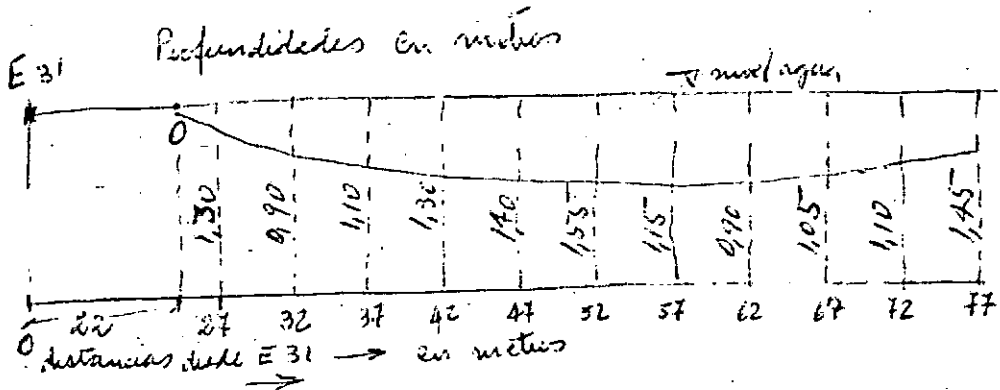 Profundidades en metros
E 31
nivel agua
0
1,30 0,90 1,10 1,30 1,40 1,55 1,15 0,90 1,05 1,10 1,45
0 22 27 32 37 42 47 52 57 62 67 72 77
distancias desde E 31 → en metros